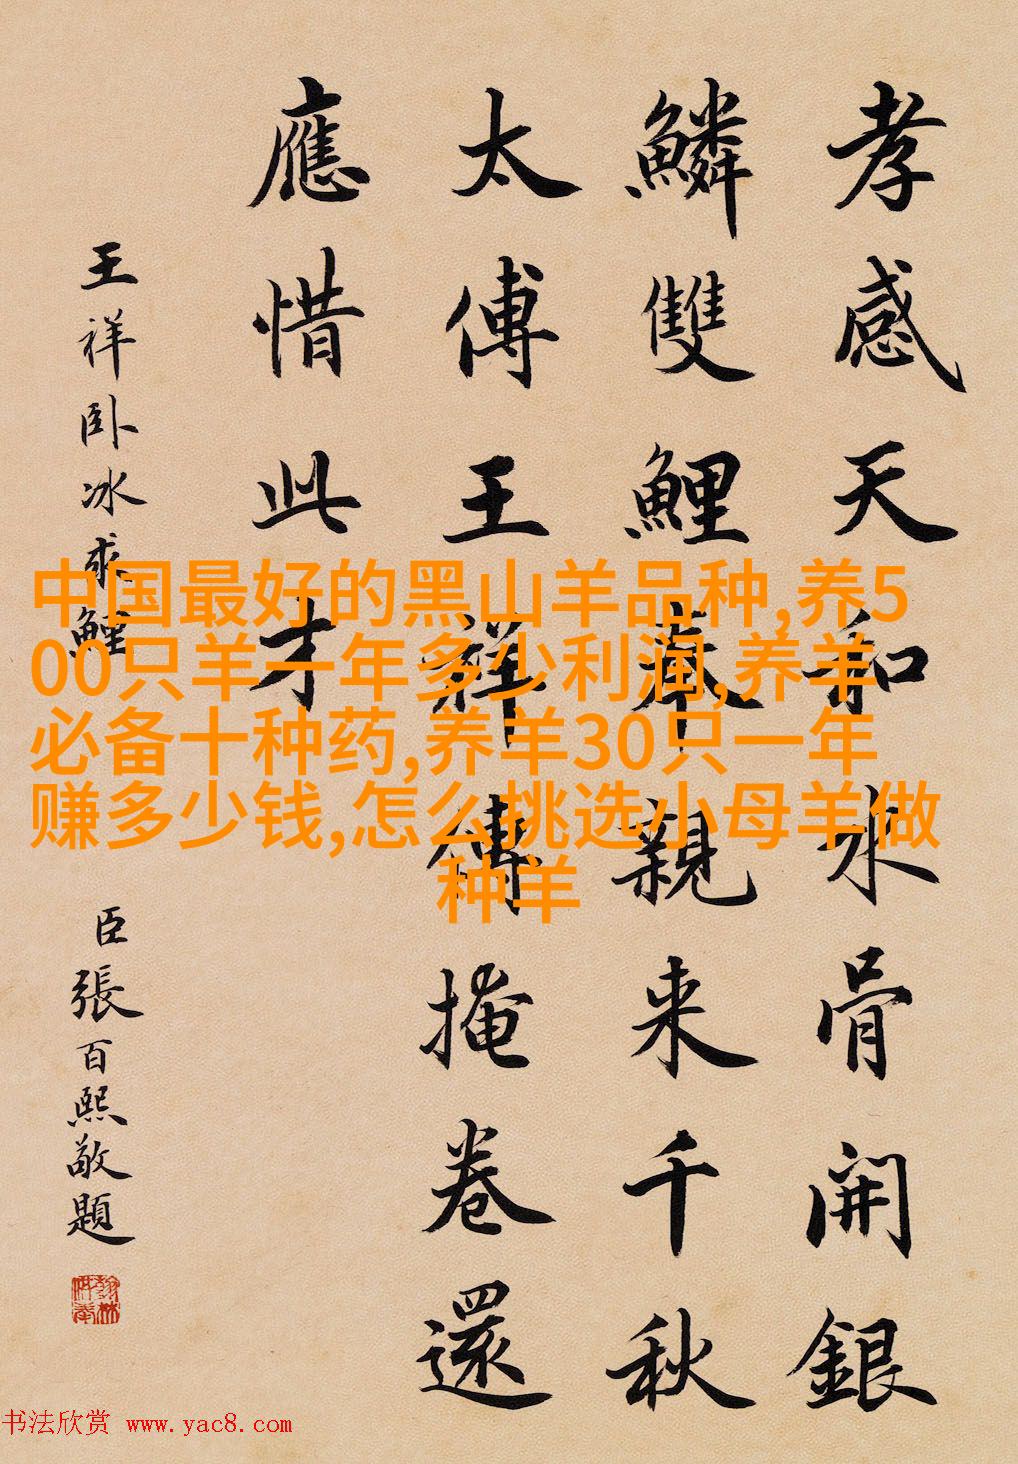 孝感天和水骨開銀
鱗雙鯉奉親来千秋
太傅王祥傳掩卷還
應惜此才
王祥卧冰求鯉
臣張百熙敬題
中国最好的黑山羊品种,养5
00只羊一年多少利润,养羊
必备十种药,养羊30只一年
赚多少钱,怎么挑选小母羊做
种羊
书法欣赏 www.yac8.com